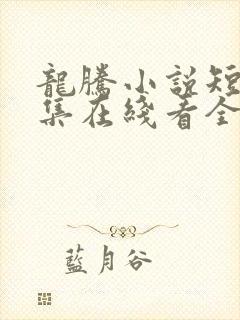 龍騰小說短
集在綫看全
藍月谷